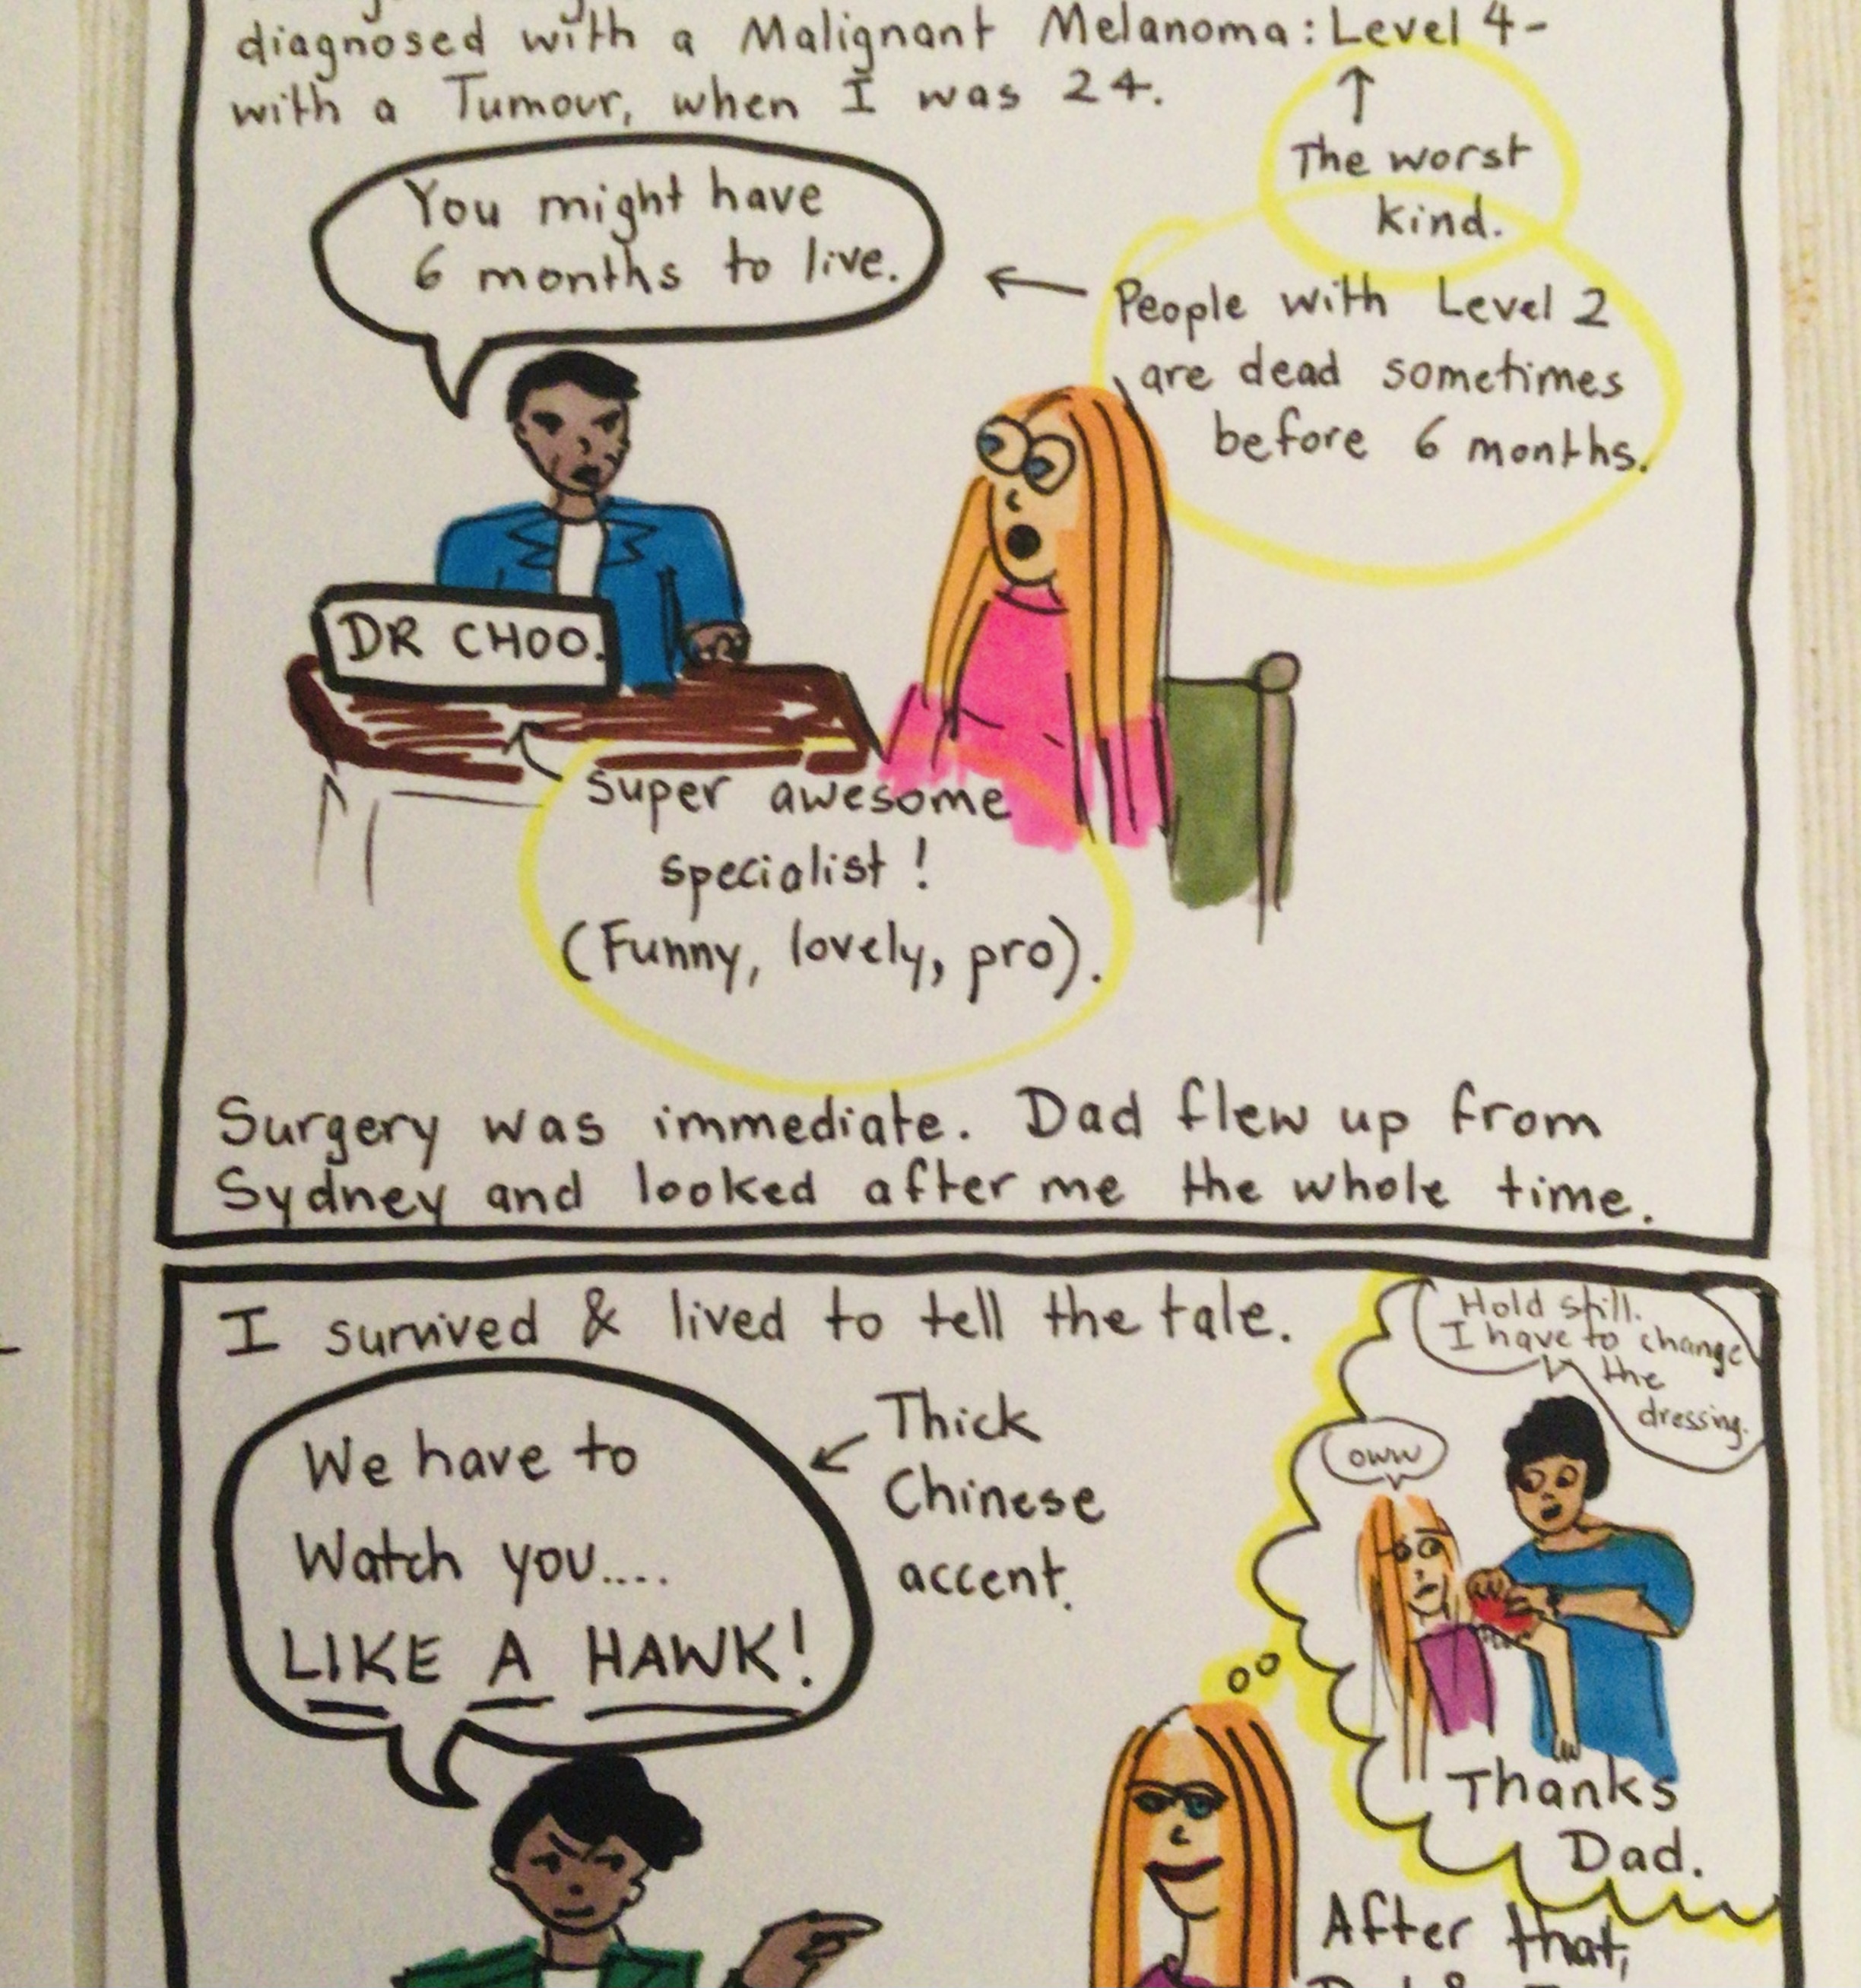 diagnosed with a Malignant Melanoma: Level 4-
with a Tumour, when I was 24.
The worst
kind.
You might have
6 months to live.
People with Level 2
are dead sometimes
before 6 months.
DR CHOO.
Super awesome
specialist!
(Funny, lovely, pro).
Surgery was immediate. Dad flew up from
Sydney and looked after me the whole time.
I survived & lived to tell the tale.
Hold still.
I have to change
the
dressing.
We have to
Watch you....
LIKE A HAWK!
Thick
Chinese
accent.
oww
Thanks
Dad.
After that,